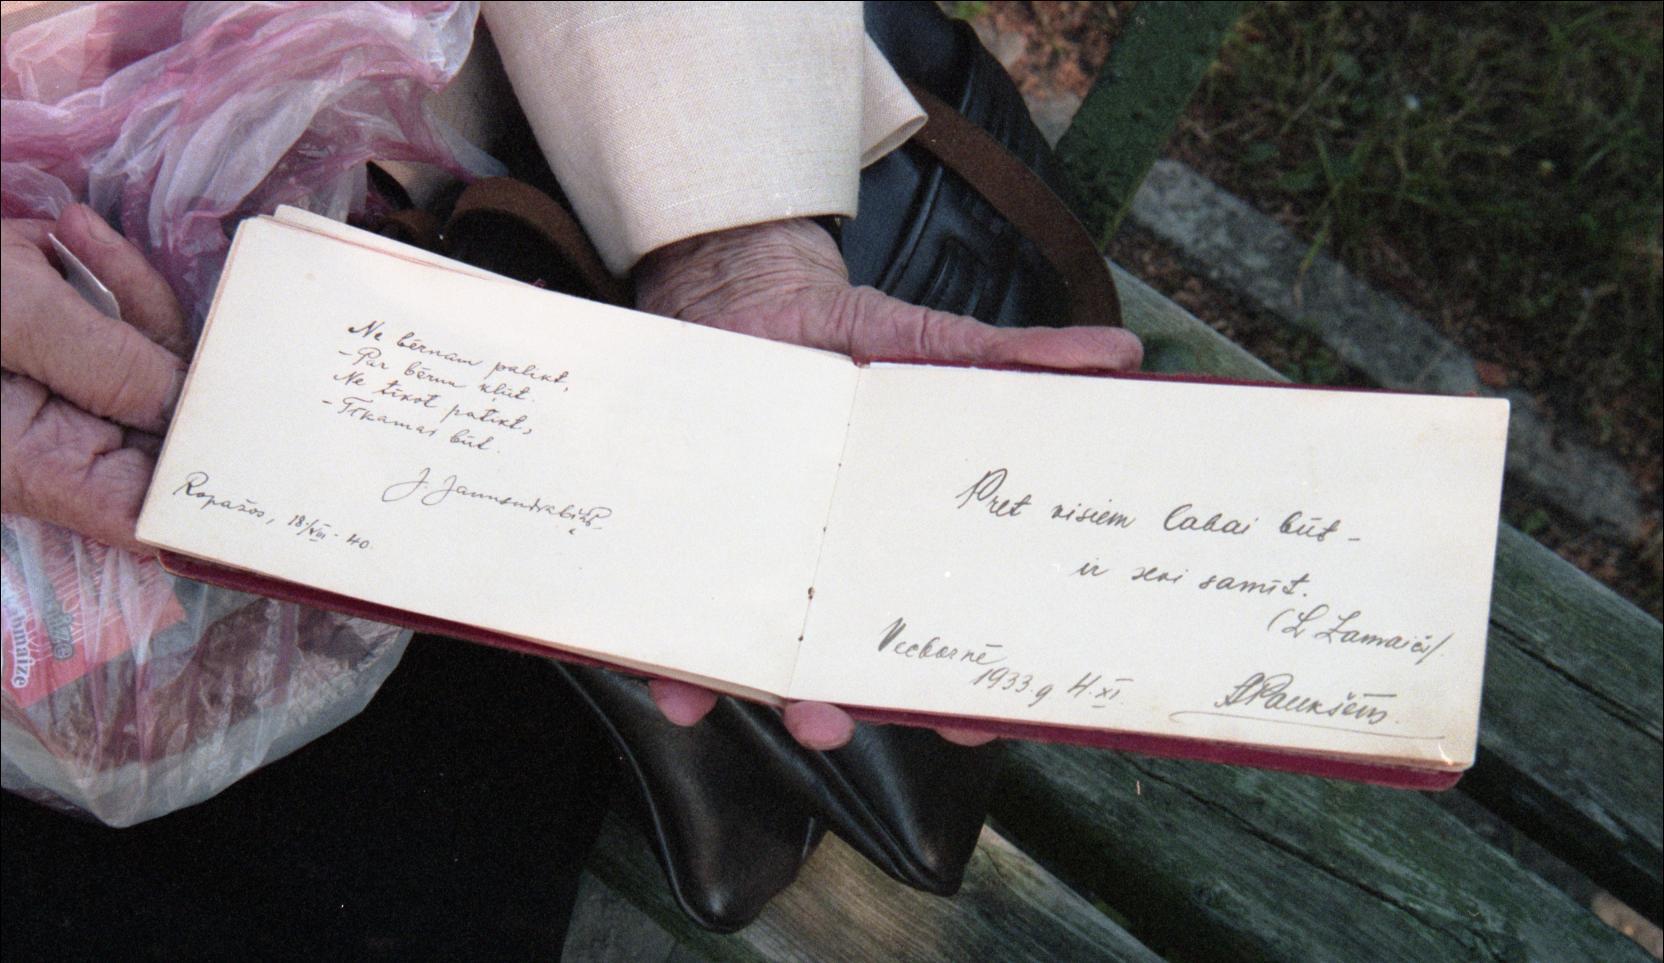 Ne bērnam palikt,
- Par bērnu kļūt.
Ne tikot patikt,
- Tīkamai būt.
J. Jaunsudrabiņš
Ropažos, 18./VIII - 40.
Pret visiem labai būt -
ir sevi samīt.
(L. Zamaič/.
Vecbornē
1933. g 4. XI.
APaukšēns.
maize